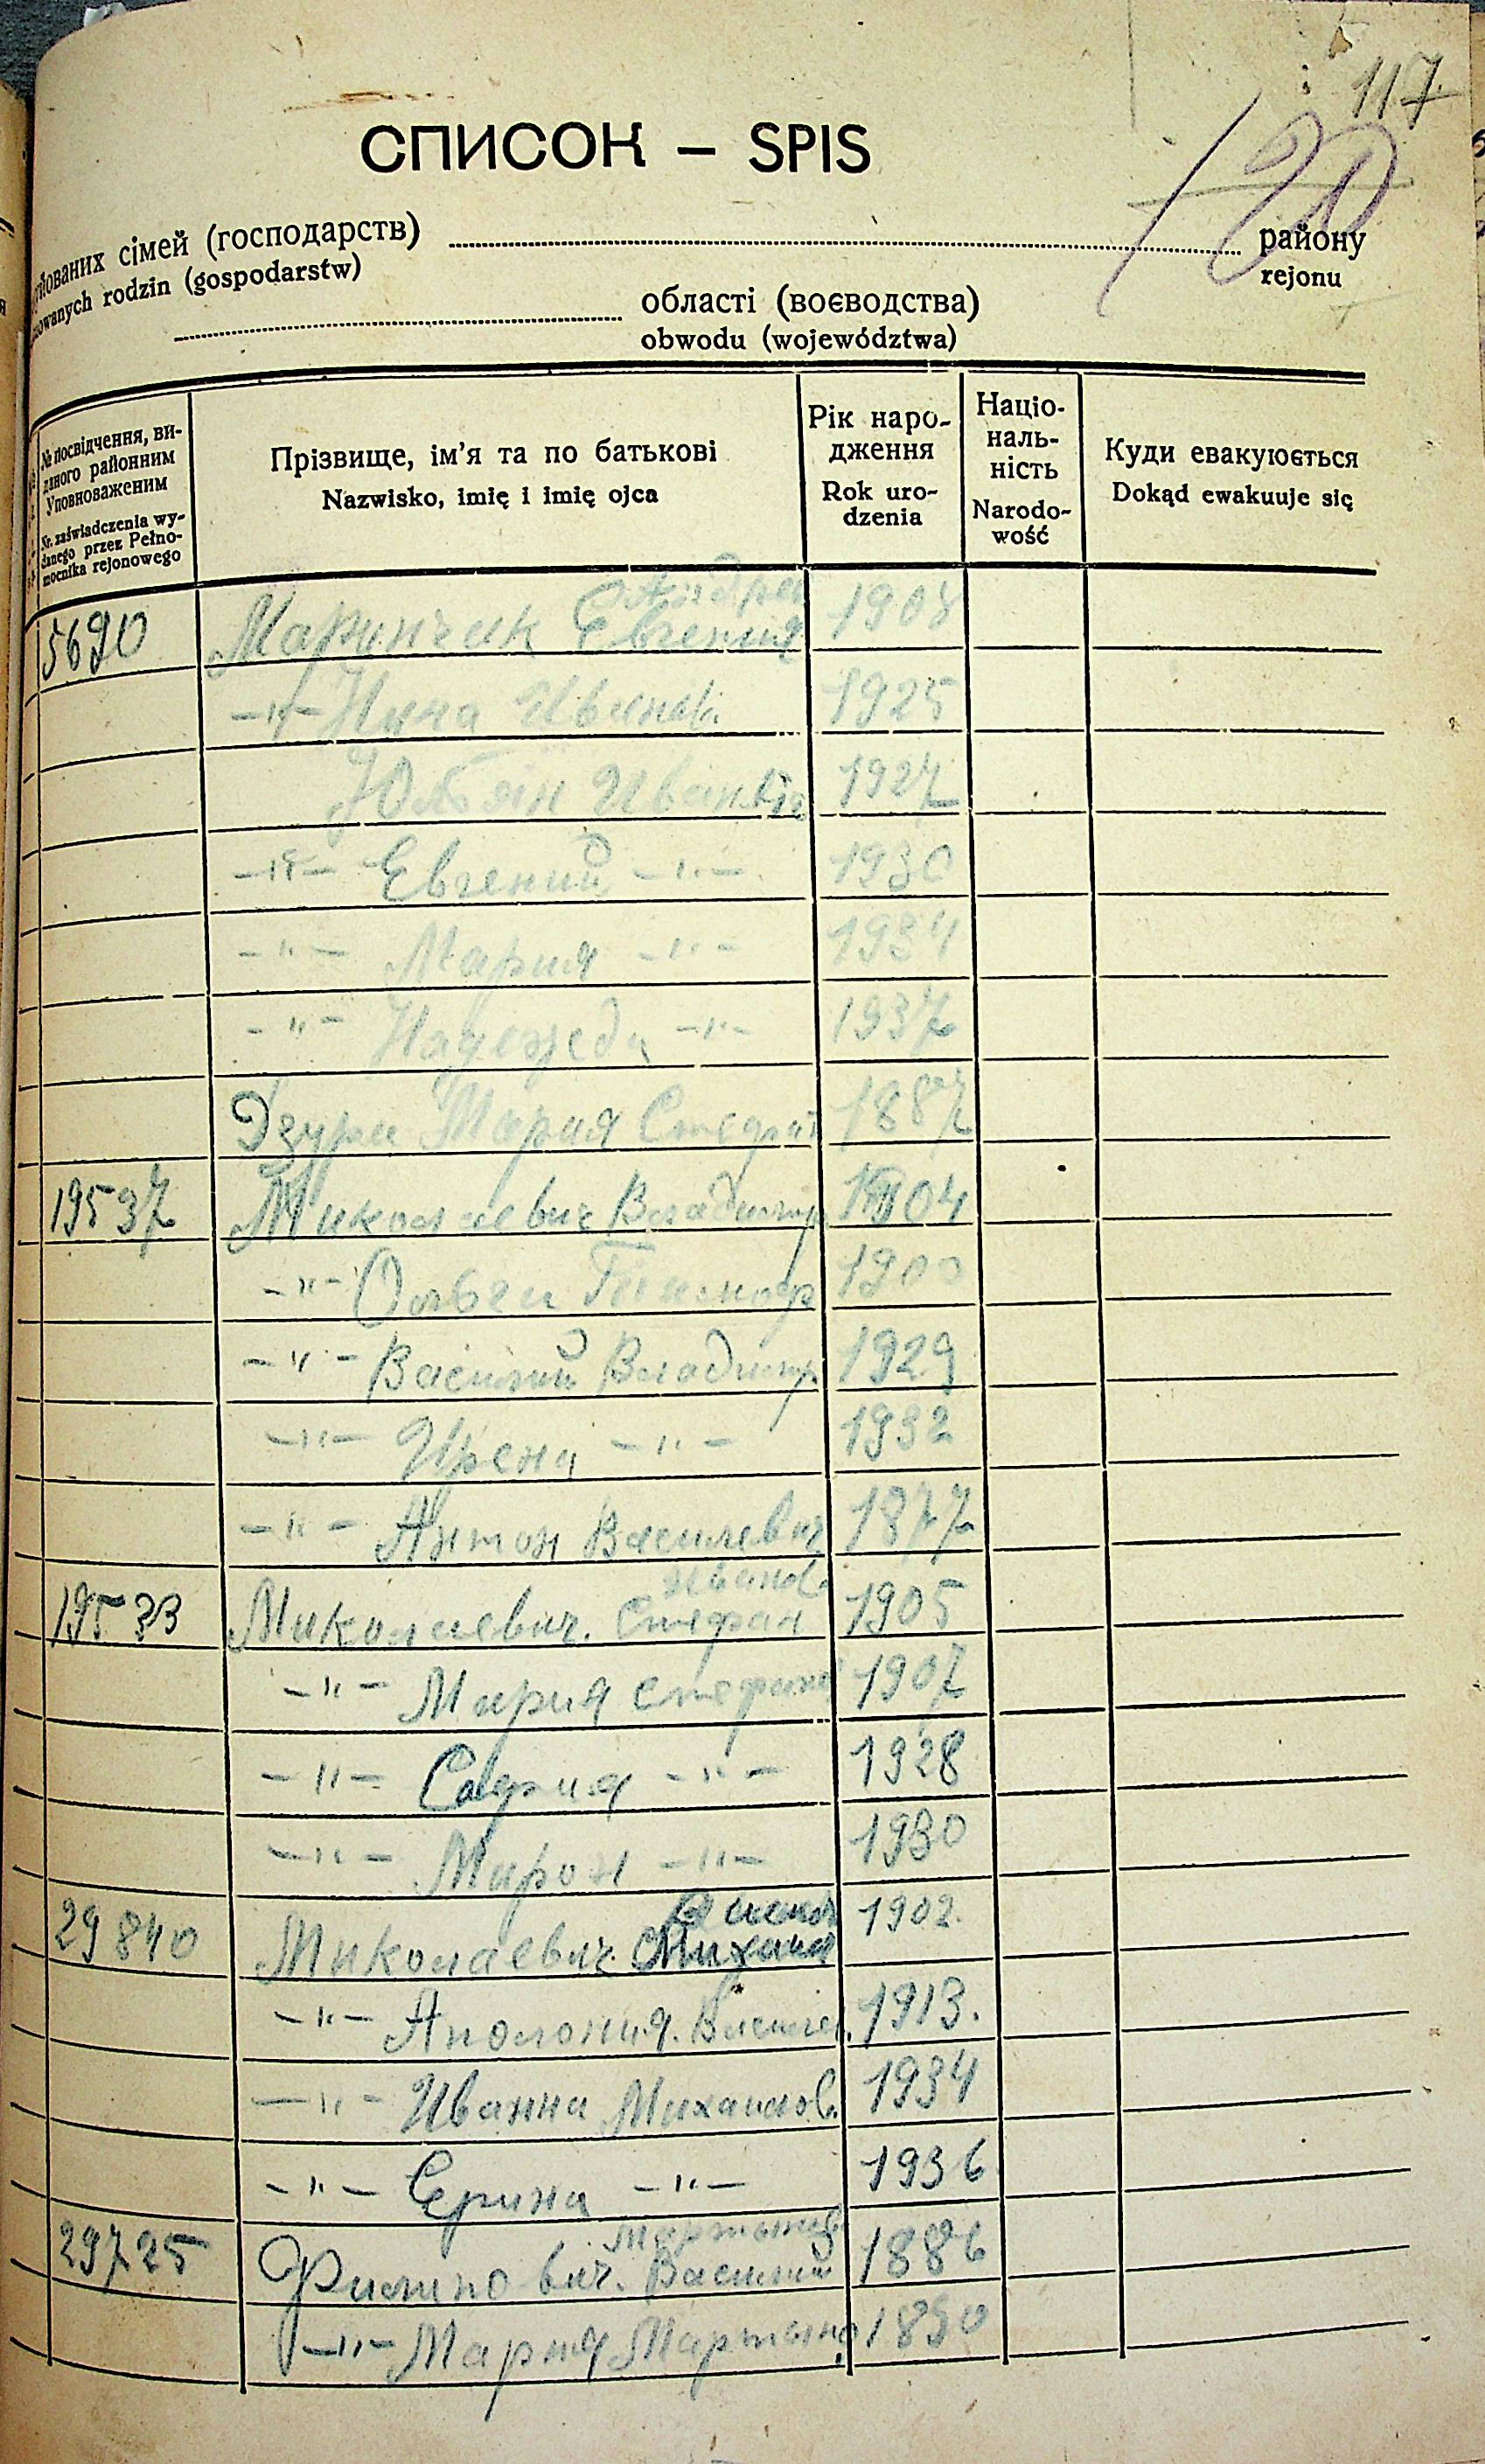 117
120
СПИСОК – SPIS
йованих сімей (господарств) району
owanych rodzin (gospodarstw) rejonu
області (воєводства)
obwodu (województwa)
№ посвідчення, ви-
даного районним
Уповноваженим
Nr. zaświadczenia wy-
danego przez Pełno-
mocnika rejonowego
Прізвище, ім’я та по батькові
Nazwisko, imię i imię ojca
Рік наро-
дження
Rok uro-
dzenia
Націо-
наль-
ність
Narodo-
wość
Куди евакуюється
Dokąd ewakuuje się
Андрев
5690 Маринчик Евгения 1908
-"- Нина Иванов. 1925
Юльян Иванов 1927
-"- Евгений -"- 1930
-"- Мария -"- 1934
-"- Надежда -"- 1937
Дзура Мария Стефан 1887
19537 Миколаевич Владимир 1904
-"- Ольга Тимоф 1900
-"- Василий Владимир 1929
-"- Ирена -"- 1932
-"- Антон Василевич 1877
Иванов.
19533 Миколаевич. Стефан 1905
-"- Мария Стефанов 1907
-"- София -"- 1928
-"- Мирон -"- 1930
29840 Миколаевич. Михаил 1902.
-"- Аполония. Василев. 1913.
-"- Иванна Михайлов. 1934
-"- Ерина -"- 1936
Мартынов
29725 Филипович. Василий 1886
-"- Мария Мартыно 1890